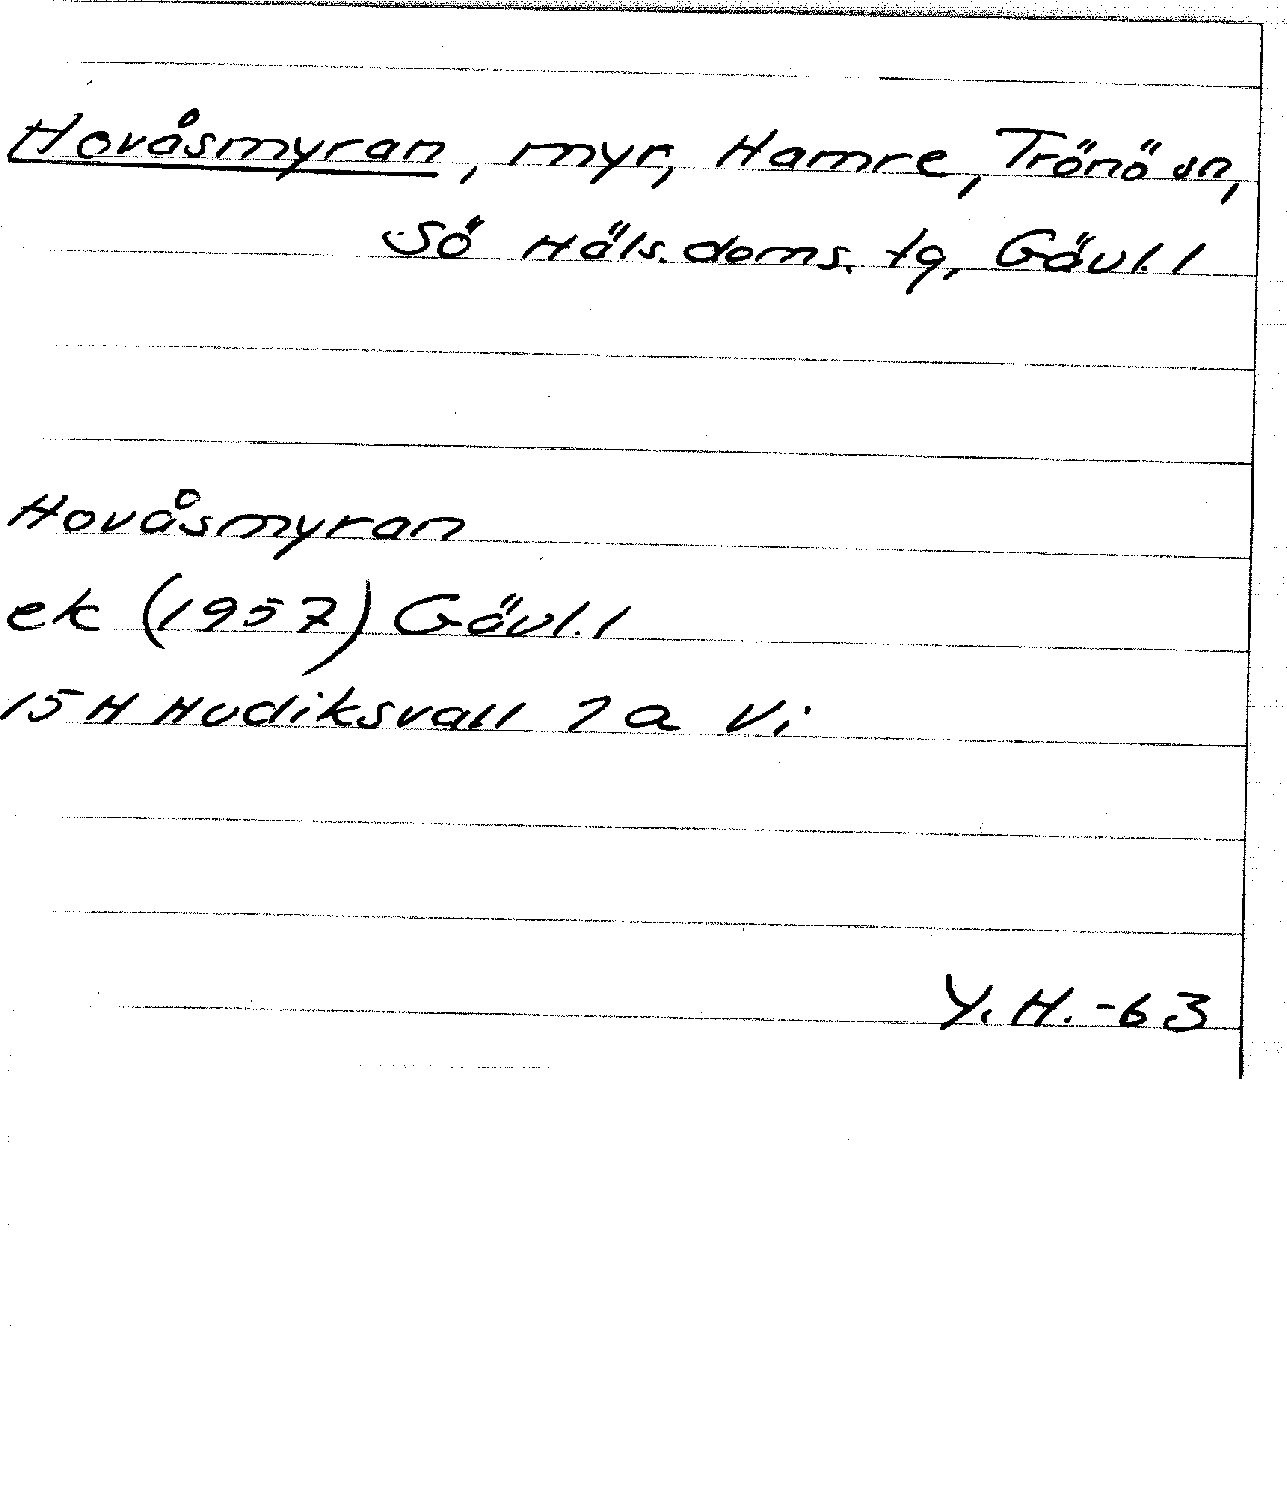 Hovåsmyran, myr, Hamre, Trönö sn,
Sö Häls. doms. tg, Gävl. l
Hovåsmyran
ek (1957) Gävl. l
15 H Hudiksvall 7 a Vi
Y. H. -63